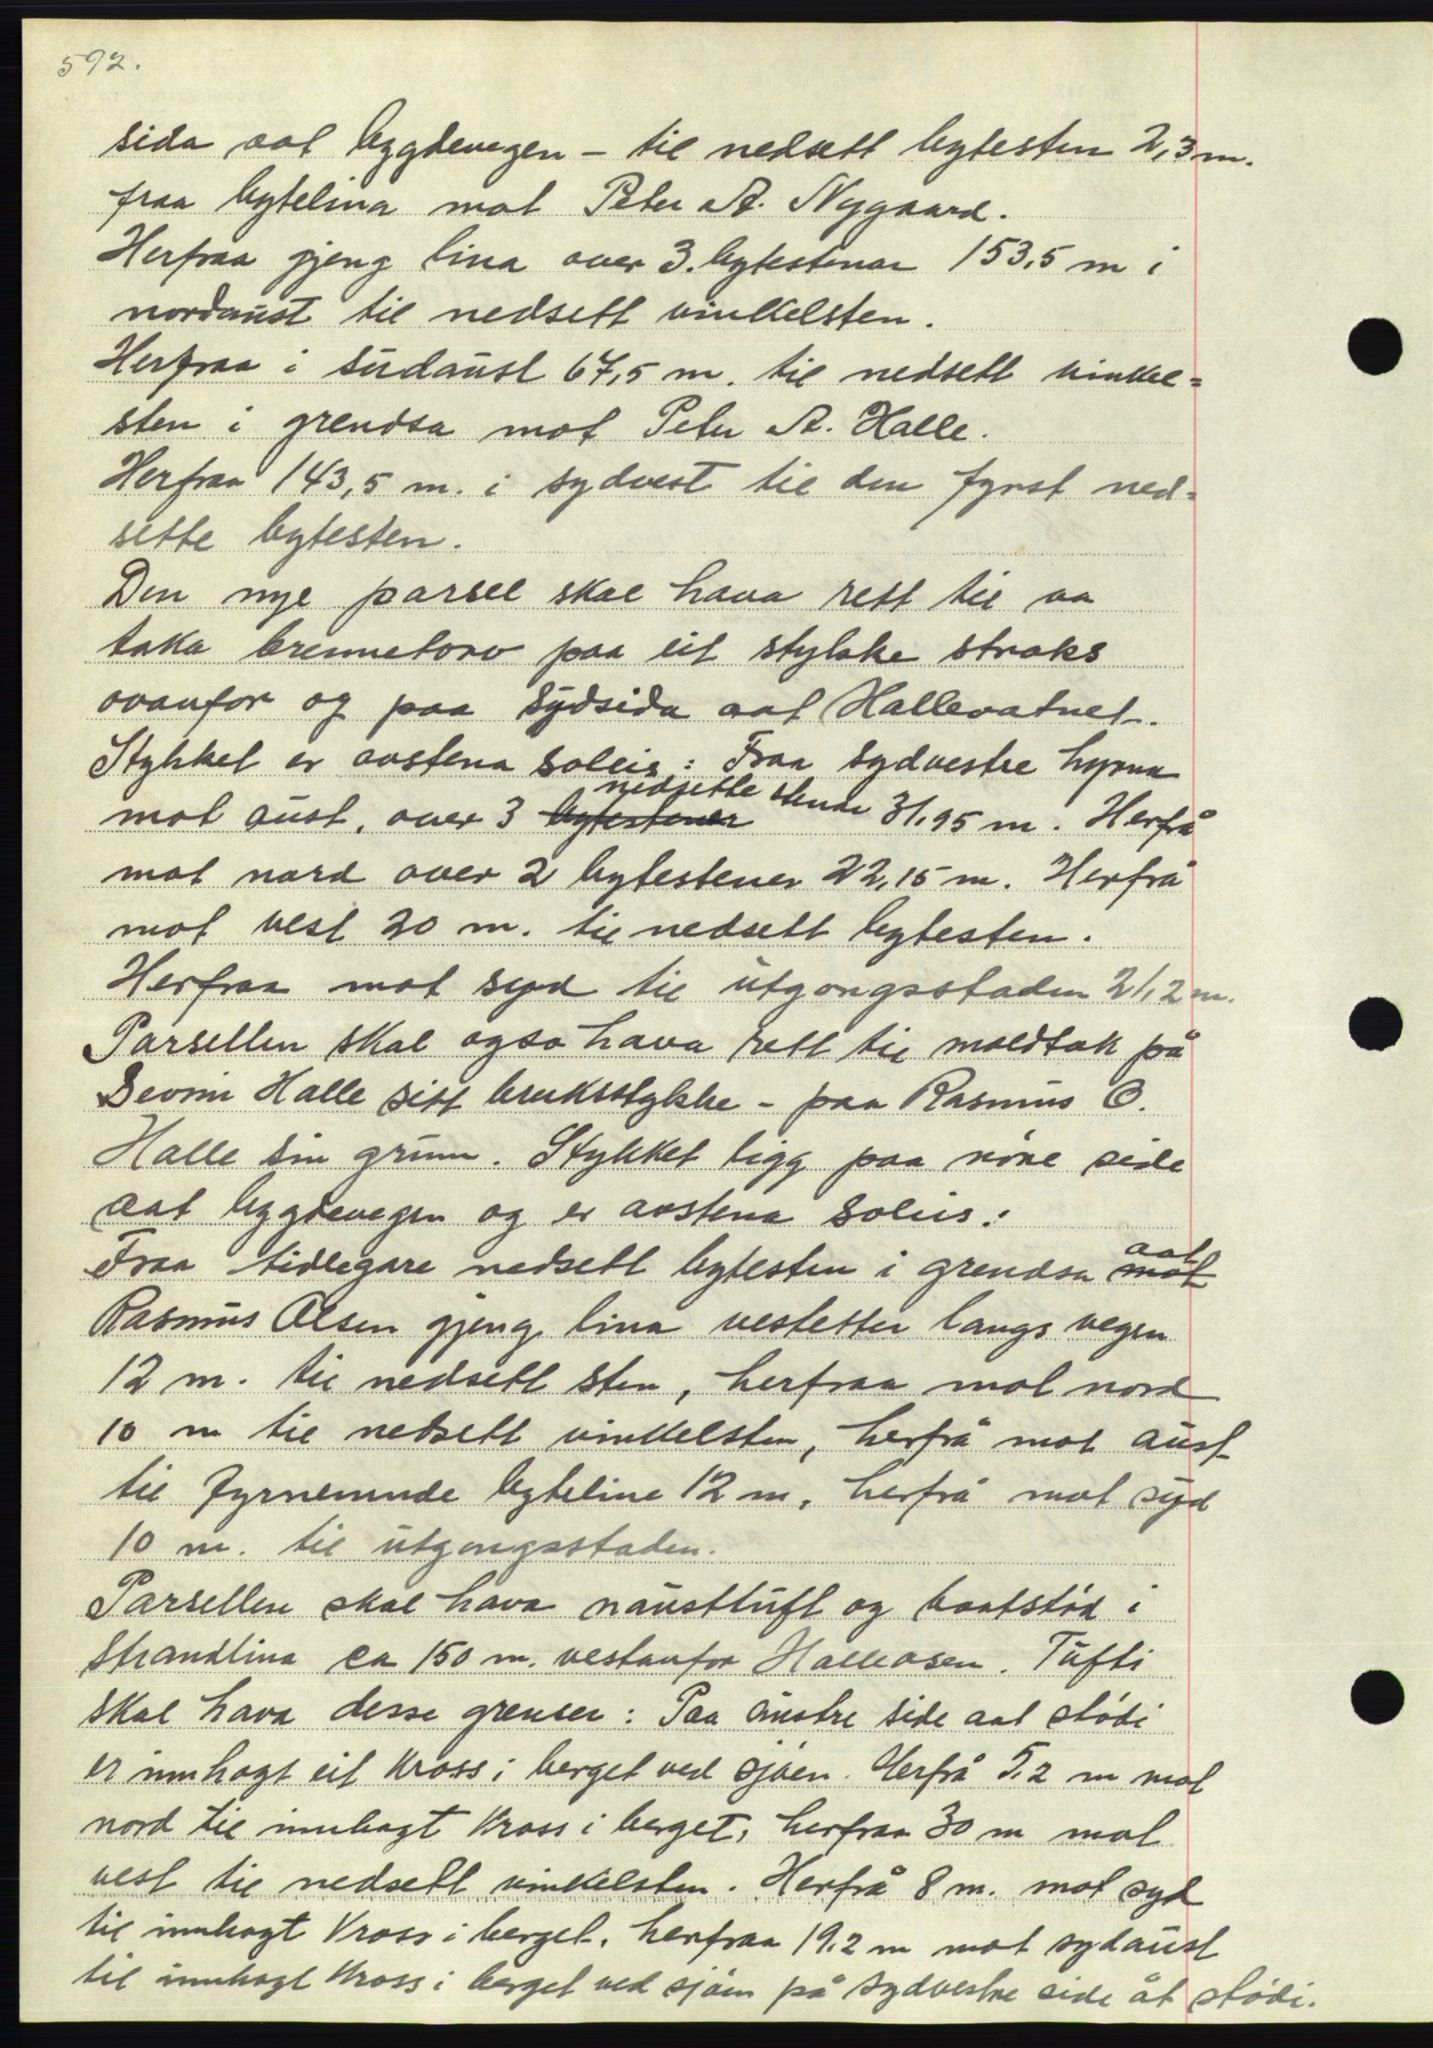 592.
sida aat bygdevegen – til nedsett bytesten 2,3 m.
fraa bytelina mot Peter A. Nygaard.
Herfraa gjeng lina over 3. bytestenar 153,5 m i
nordaust til nedsett vinkelsten.
Herfraa i sudaust 67,5 m. til nedsett vinkel=
sten i grendsa mot Peter A. Halle.
Herfraa 143,5 m. i sydvest til den fyrst ned=
sette bytesten.
Den nye parsel skal hava rett til aa
taka brennetorv paa eit stykke straks
ovanfor og paa sydsida aat Hallevatnet.
Stykket er avstena soleis: Fraa sydvestre hyrna
mot aust, over 3 bytestener nedsette stenar 31,95 m. Herfrå
mot nord over 2 bytestener 22,15 m. Herfrå
mot vest 20 m. til nedsett bytesten.
Herfraa mot syd til utgongsstaden 21,2 m.
Parsellen skal ogso hava rett til moldtak på
Halle sitt bruksstykke – paa Rasmus O.
Halle sin grunn. Stykket ligg paa nöre side
aat bygdevegen og er avstena soleis:
Fraa tidlegare nedsett bytesten i grendsa mot aat
Rasmus Olsen gjeng lina vestetter langs vegen
12 m. til nedsett sten, herfraa mot nord
10 m til nedsett vinkelsten, herfrå mot aust
til fyrnemnde byteline 12 m, herfrå mot syd
10 m. til utgongsstaden.
Parsellen skal hava nausttuft og baatstöd i
strandlina ca 150 m. vestanfor Halleosen. Tufti
skal hava desse grenser: Paa austre side aat stödi
er innhogt eit kross i berget ved sjöen. Herfrå 5,2 m mot
nord til innhogt kross i berget, herfraa 30 m mot
vest til nedsett vinkelsten. Herfrå 8 m. mot syd
til innhogt kross i berget, herfraa 19,2 m mot sydaust
til innhogt kross i berget ved sjöen på sydvestre side åt stödi.